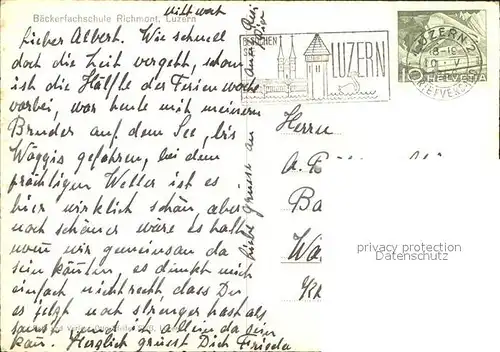 Mittwoch
Bäckerfachschule Richmont, Luzern
Lieber Albert. Wie schnell
doch die Zeit vergeht, schon
ist die Hälfte der Ferienwoche
vorbei, war heute mit meinem
Bruder auf dem See, bis
Wäggis gefahren, bei dem
prächtigen Wetter ist es
hier wirklich schön aber
noch schöner wäre es halt
wenn wir gemeinsam da
sein könnten es dünkt mich
einfach nicht recht, dass Du
es jetzt noch strenger hast als
sonst und ich allein da sein
kann. Herzlich grüsst Dich Frieda
Liebe Grüsse an
LUZERN
LUZERN 2
18-19
10
HELVETIA
BRIEFVERSAND
Herrn
A.
Ba
Wä
privacy protection
datenschutz